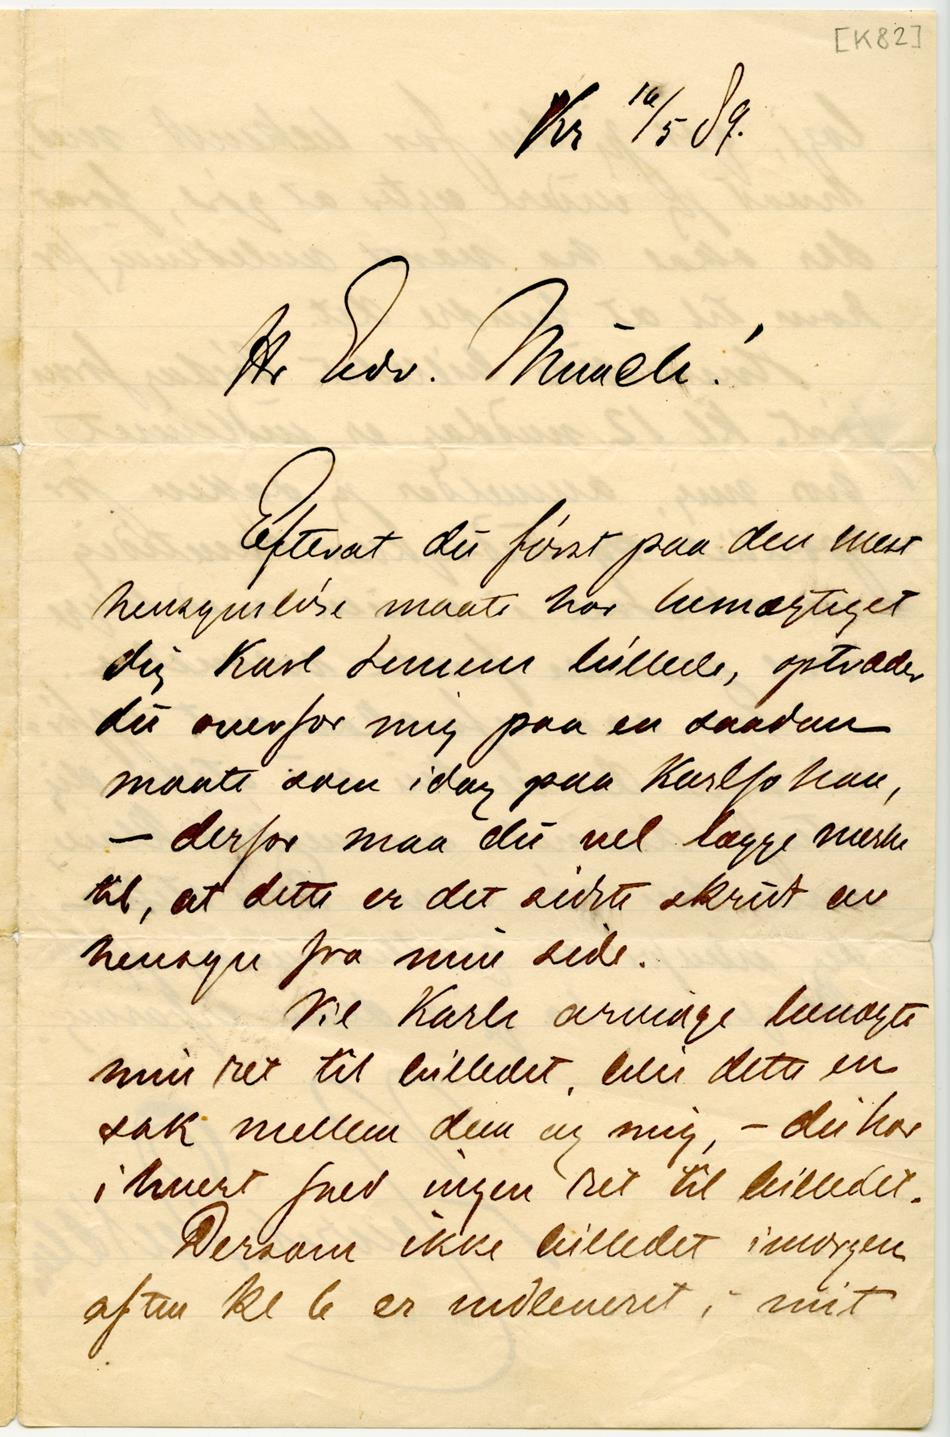 [K82]
Kr 16/5 89.
Hr Edv. Munch!
Efterat du först paa den mest
hensynslöse maate har bemægtiget
dig Karl Jensens billede, optræder
du overfor mig paa en saadan
maate som idag paa Karl Johan,
– derfor maa du vel lægge merke
til, at dette er det sidste skridt av
hensyn fra min side.
Vil Karls arvinge benægte
min ret til billedet, blir dette en
sak mellem dem og mig, – du har
i hvert fald ingen ret til billedet.
Dersom ikke billedet imorgen
aften kl 6 er indleveret i mit